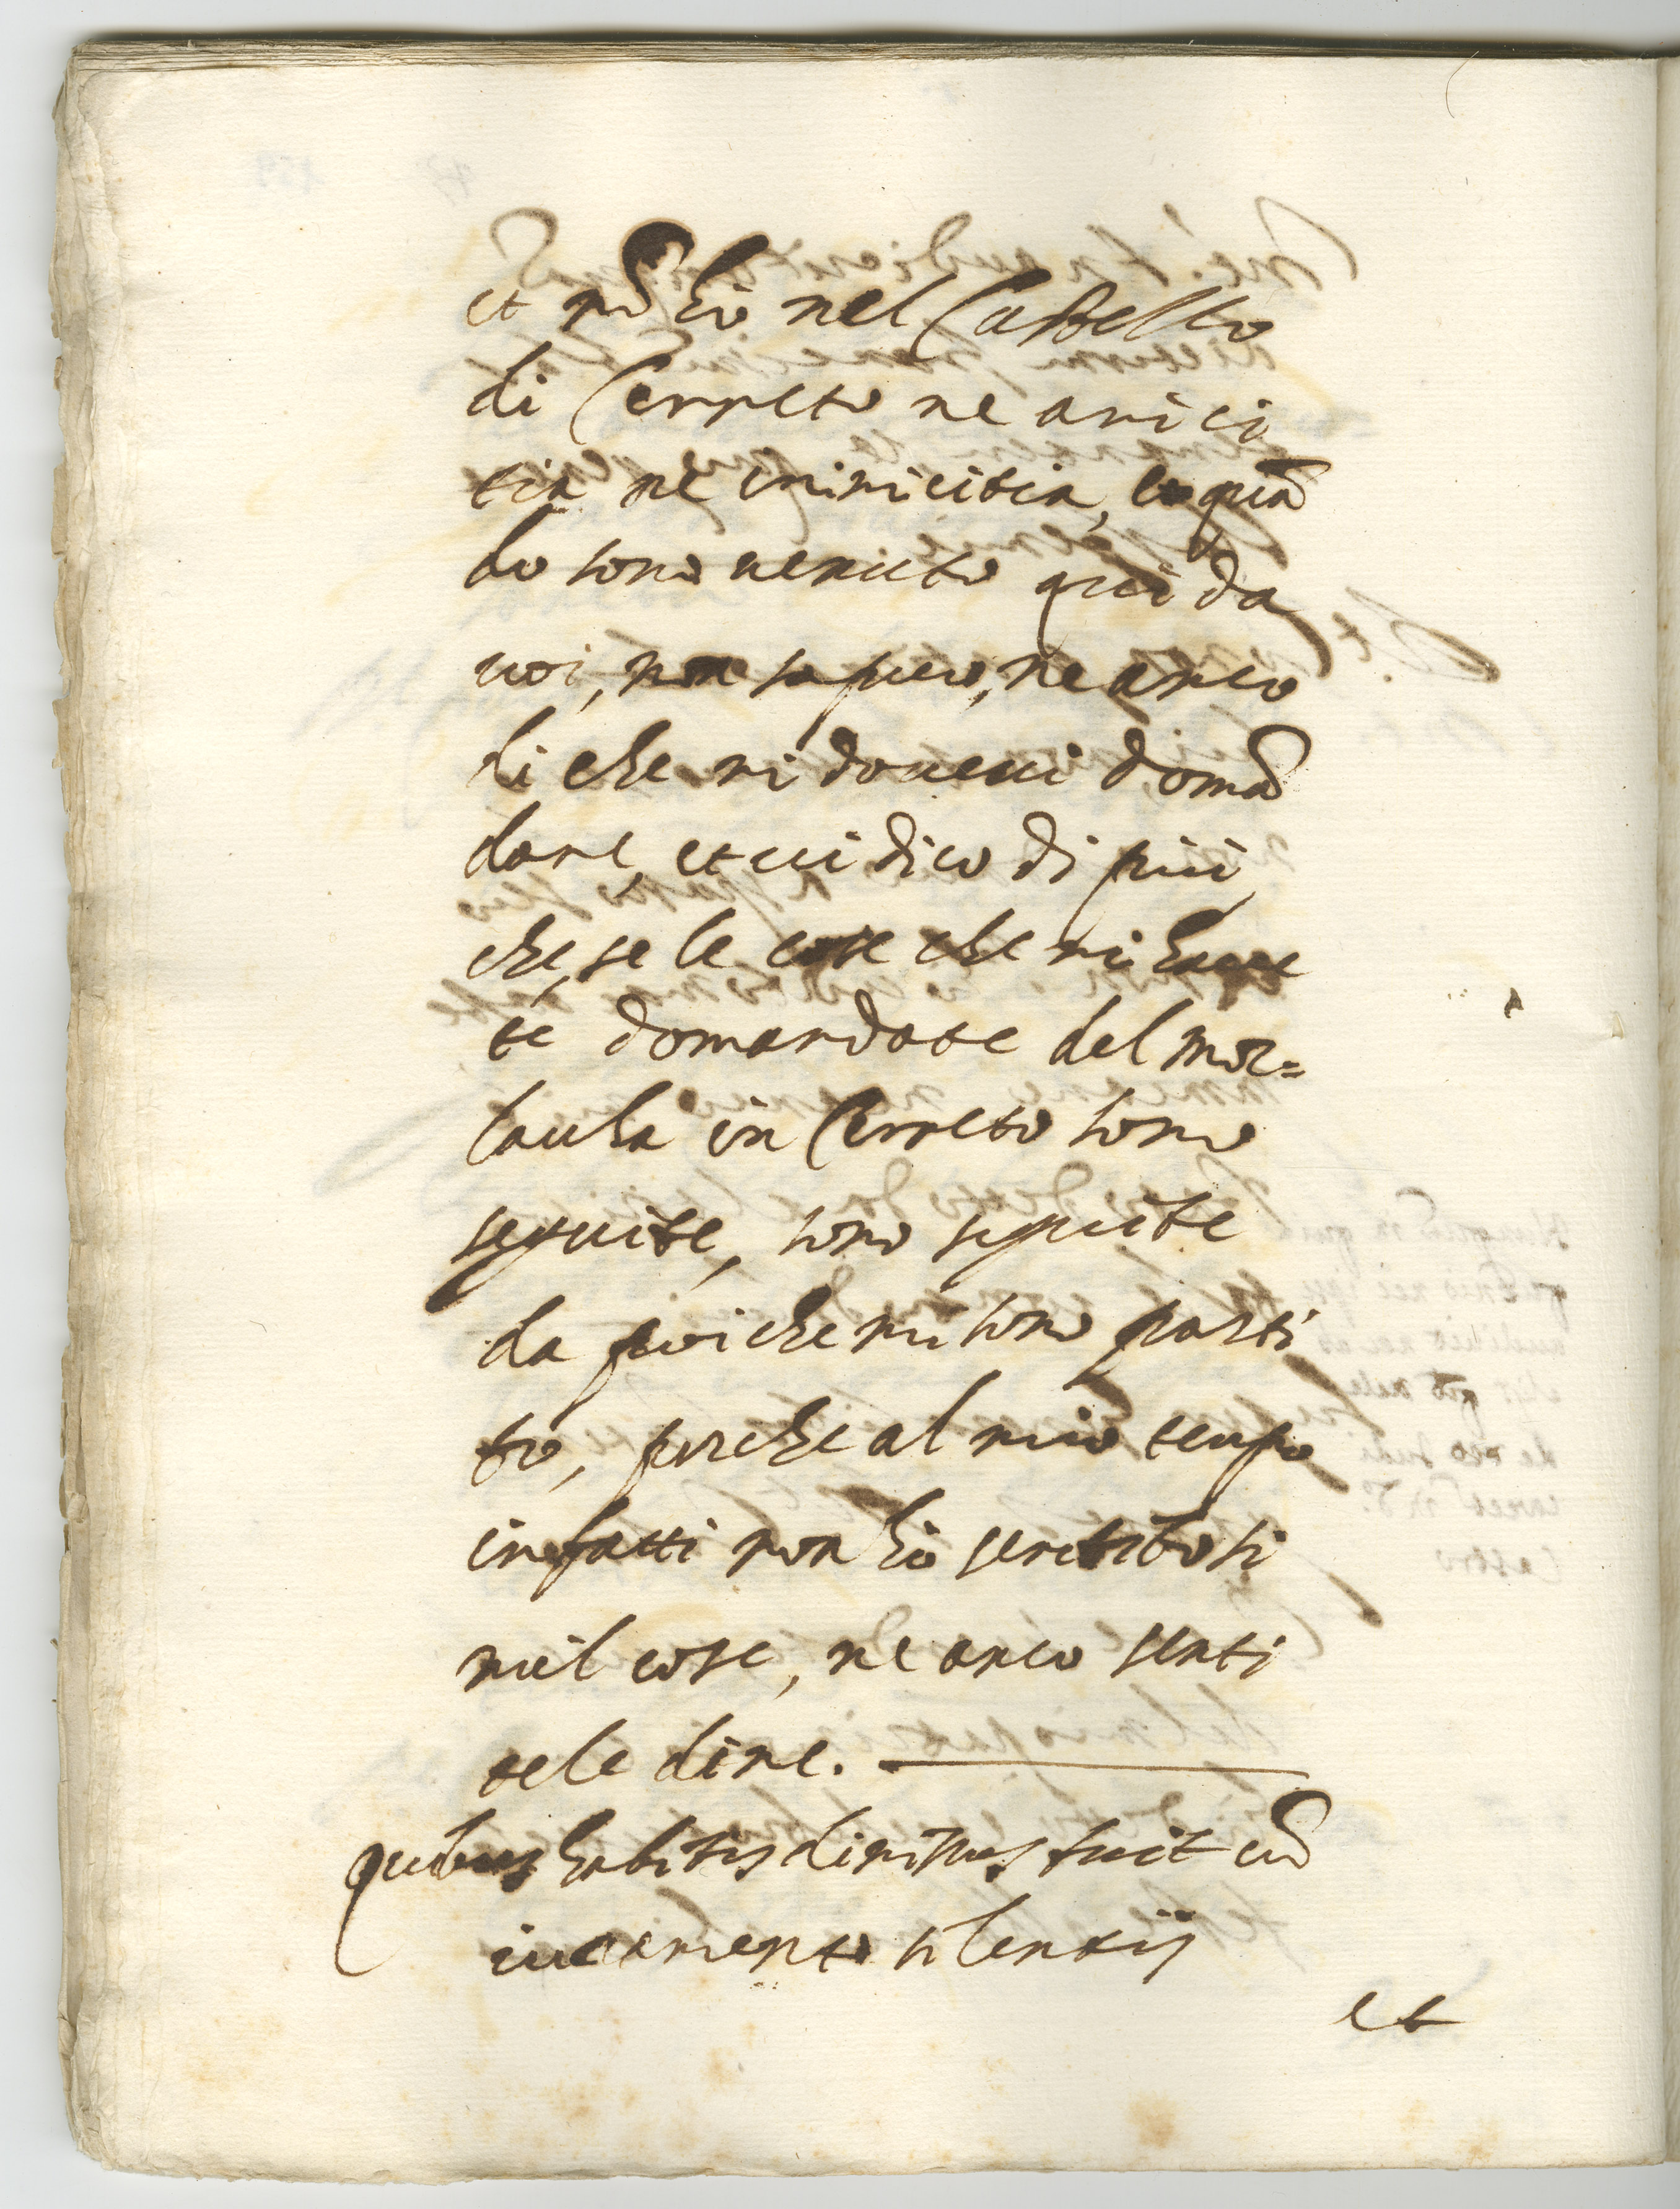 et nõ hò nel Castello
di Cerreto ne amici
tia ne inimicitia, et quã
do sono venuto qui da
voi, non sapevo, ne anco
di che mi dovevi domã
dare, et vi dico di più
che, se le cose che mi have
te domandate del mor=
taula in Cerreto sono
seguite, sono seguite
da poi che mi sono parti
to, perche al mio tempo
in fatti non hò sentito si
mil cose, ne anco senti
tele dire.
quibus habitis dimissus fuit cũ
iuramento silentij
et